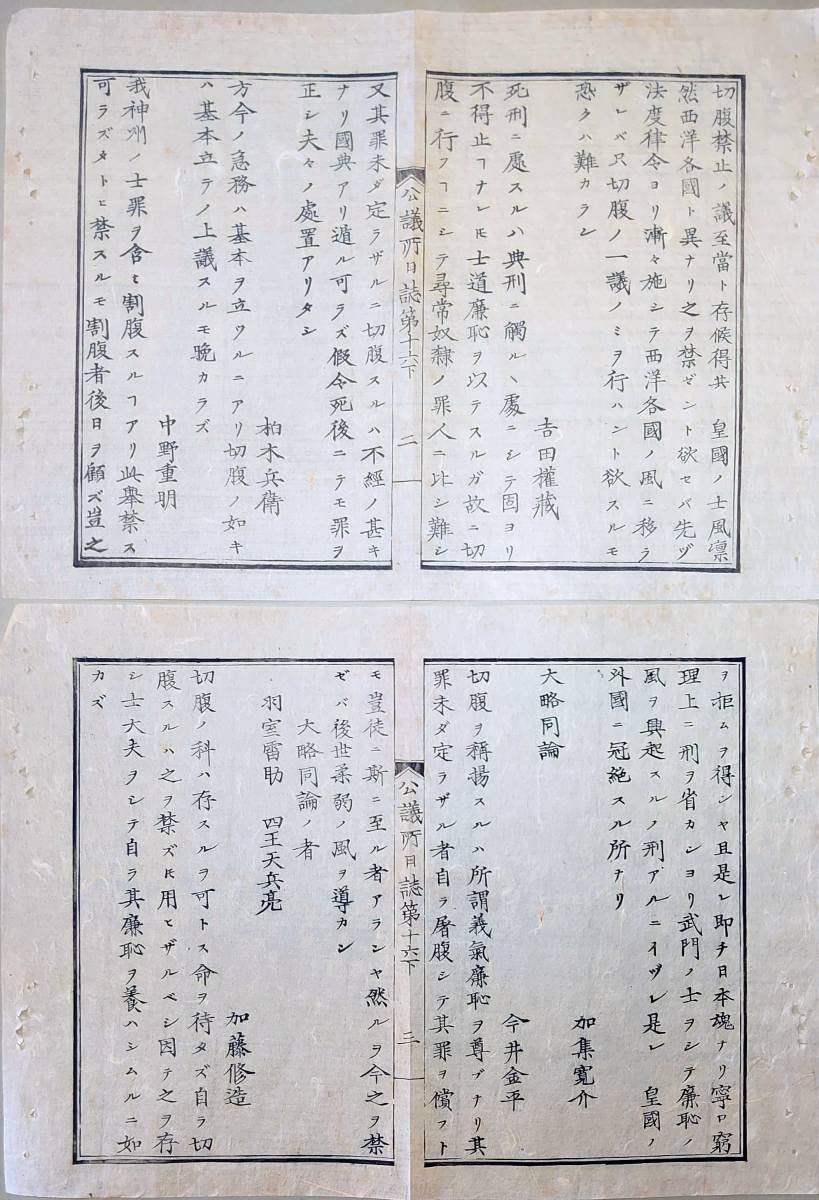 切腹禁止ノ議至當ト存候得共　皇國ノ士風凛
然西洋各國ト異ナリ之ヲ禁ゼント欲セバ先ヅ
法度律令ヨリ漸々施シテ西洋各國ノ風ニ移ラ
ザレバ只切腹ノ一議ノミヲ行ハント欲スルモ
恐クハ難カラン
吉田權藏
死刑ニ處スルハ典刑ニ觸ルヽ處ニシテ固ヨリ
不得止ヿナレ𪜈士道廉恥ヲ以テスルガ故ニ切
腹ニ行フヿニシテ尋常奴隸ノ罪人ニ比シ難シ
公議所日誌第十六下　二
又其罪未ダ定ラザルニ切腹スルハ不經ノ甚キ
ナリ國典アリ遁ル可ラズ假令死後ニテモ罪ヲ
正シ夫々ノ處置アリタシ
柏木兵衛
方今ノ急務ハ基本ヲ立ツルニアリ切腹ノ如キ
ハ基本立テノ上議スルモ晩カラズ
中野重明
我神州ノ士罪ヲ含ミ割腹スルヿアリ此舉禁ス
可ラズタトヒ禁スルモ割腹者後日ヲ顧ズ豈之
ヲ拒ムヲ得ンヤ且是レ即チ日本魂ナリ寧ロ窮
理上ニ刑ヲ省カンヨリ武門ノ士ヲシテ廉恥ノ
風ヲ興起スルノ刑アルニイヅレ是レ　皇國ノ
外國ニ冠絶スル所ナリ
加集寛介
大略同論
今井金平
切腹ヲ稱揚スルハ所謂義氣廉恥ヲ尊ブナリ其
罪未ダ定ラザル者自ラ屠腹シテ其罪ヲ償フト
公議所日誌第十六下　三
モ豈徒ニ斯ニ至ル者アランヤ然ルヲ今之ヲ禁
ゼバ後世柔弱ノ風ヲ導カン
大略同論ノ者
羽室雷助　四王天兵亮
加藤修造
切腹ノ科ハ存スルヲ可トス命ヲ待タズ自ラ切
腹スルハ之ヲ禁ズ𪜈用ヒザルベシ因テ之ヲ存
シ士大夫ヲシテ自ラ其廉恥ヲ養ハシムルニ如
カズ